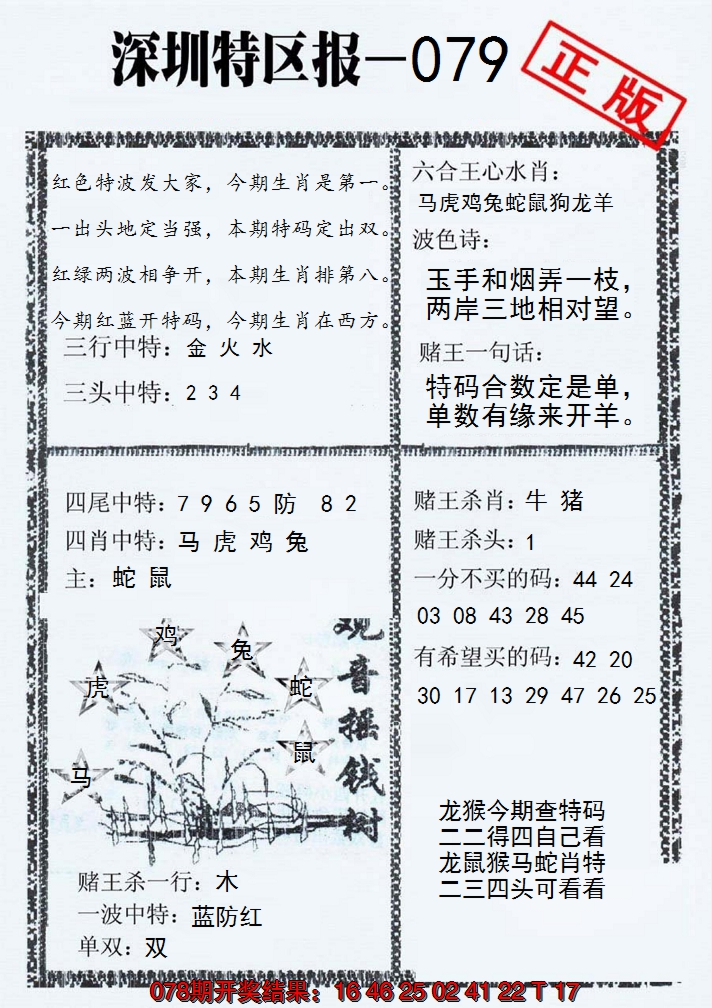 深圳特区报—079
正版
红色特波发大家，今期生肖是第一。
一出头地定当强，本期特码定出双。
红绿两波相争开，本期生肖排第八。
今期红蓝开特码，今期生肖在西方。
三行中特：金 火 水
三头中特：2 3 4
六合王心水肖：
马虎鸡兔蛇鼠狗龙羊
波色诗：
玉手和烟弄一枝，
两岸三地相对望。
赌王一句话：
特码合数定是单，
单数有缘来开羊。
四尾中特：7 9 6 5 防 8 2
四肖中特：马 虎 鸡 兔
主：蛇 鼠
鸡
兔
虎
蛇
鼠
马
观音摇钱树
赌王杀一行：木
一波中特：蓝防红
单双：双
赌王杀肖：牛 猪
赌王杀头：1
一分不买的码：44 24
03 08 43 28 45
有希望买的码：42 20
30 17 13 29 47 26 25
龙猴今期查特码
二二得四自己看
龙鼠猴马蛇肖特
二三四头可看看
078期开奖结果：16 46 25 02 41 22 T 17